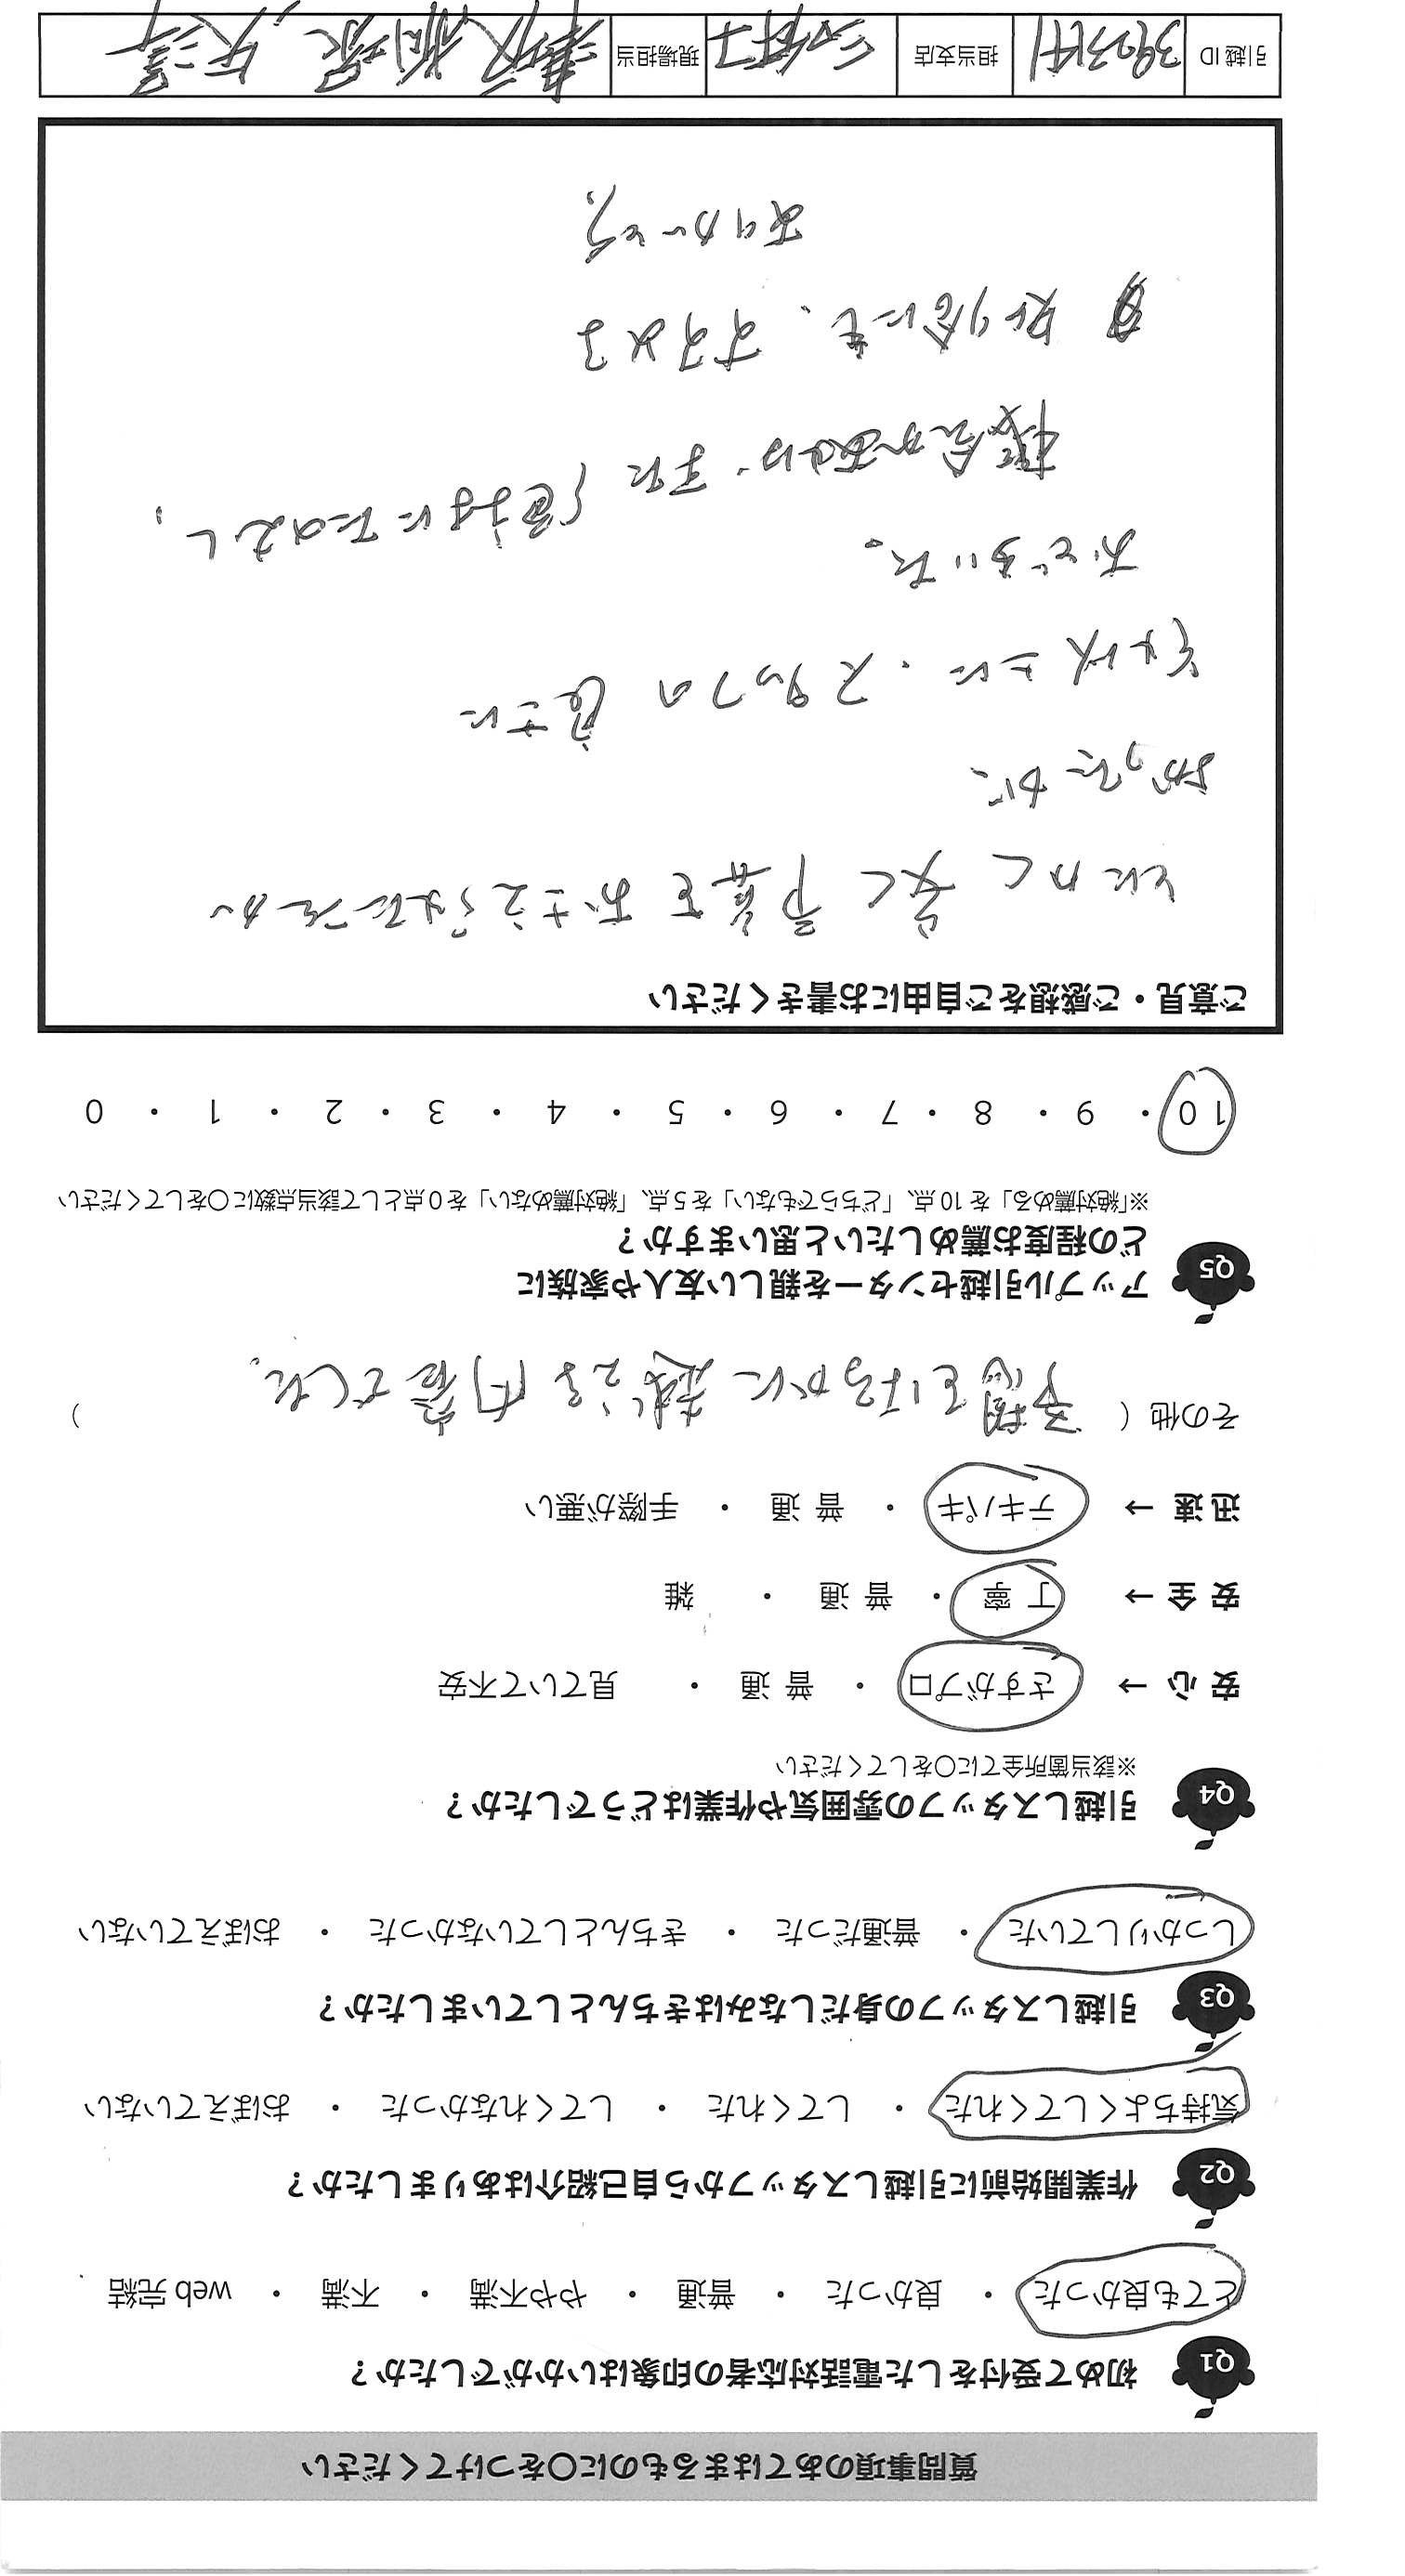 質問事項のあてはまるものに〇をつけてください
Q1 初めて受付をした電話対応者の印象はいかがでしたか？
とても良かった ・ 良かった ・ 普通 ・ やや不満 ・ 不満 ・ web 完結
Q2 作業開始前に引越しスタッフから自己紹介はありましたか？
気持ちよくしてくれた ・ してくれた ・ してくれなかった ・ おぼえていない
Q3 引越しスタッフの身だしなみはきちんとしていましたか？
しっかりしていた ・ 普通だった ・ きちんとしていなかった ・ おぼえていない
Q4 引越しスタッフの雰囲気や作業はどうでしたか？
※該当箇所全てに〇をしてください
安 心 → さすがプロ ・ 普 通 ・ 見ていて不安
安 全 → 丁 寧 ・ 普 通 ・ 雑
迅 速 → テキパキ ・ 普 通 ・ 手際が悪い
その他（ 予想をはるかに越える内容でした。 ）
Q5 アップル引越センターを親しい友人や家族に
どの程度お薦めしたいと思いますか？
※「絶対薦める」を 10 点、「どちらでもない」を 5 点、「絶対薦めない」を 0 点として該当点数に〇をしてください
10 ・ 9 ・ 8 ・ 7 ・ 6 ・ 5 ・ 4 ・ 3 ・ 2 ・ 1 ・ 0
ご意見・ご感想をご自由にお書きください
とにかく 安く 予算を おさえられたことが
よかったが、
それ以上に、スタッフの 良さに
おどろいた。
機会があれば、また 必ず にたのむし、
知り合にも、すすめる
ありがとう。
引越 ID 担当支店 現場担当